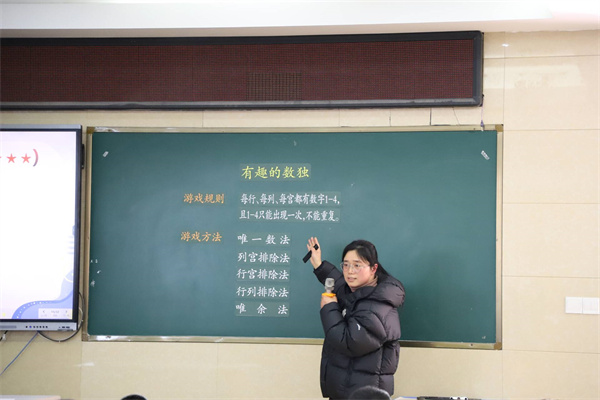 ★★)
有趣的数独
游戏规则 每行、每列、每宫都有数字1-4,
且1-4只能出现一次,不能重复。
游戏方法 唯一数法
列宫排除法
行宫排除法
行列排除法
唯余法